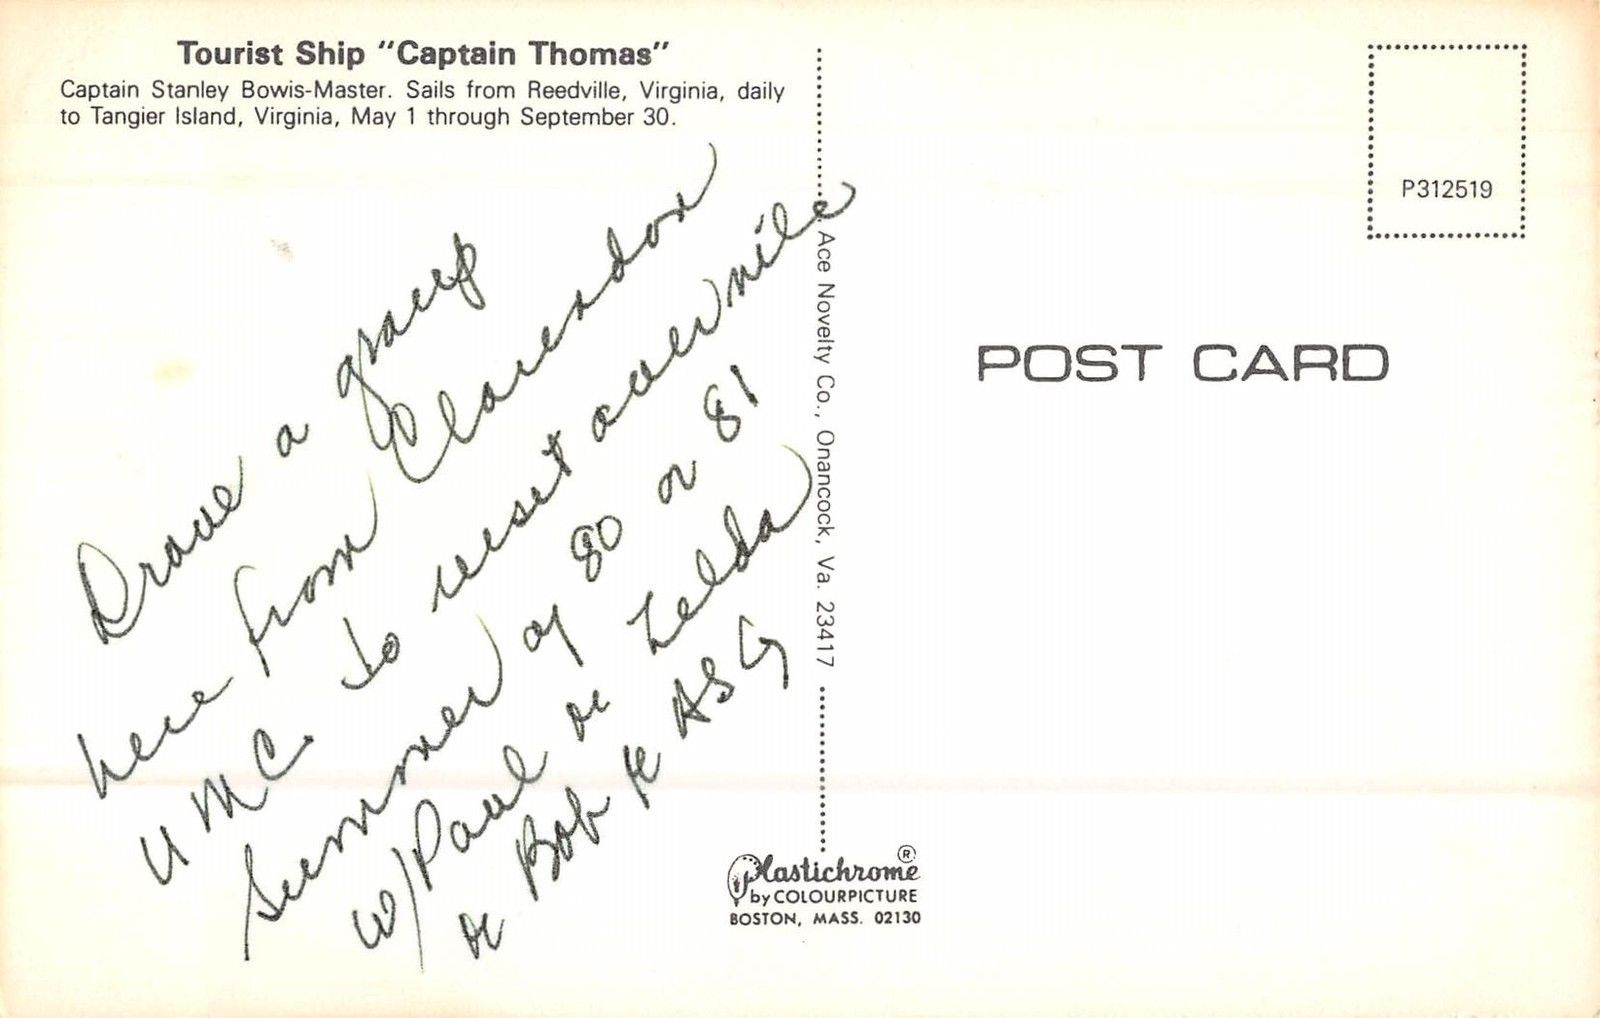 Tourist Ship "Captain Thomas"
Captain Stanley Bowis-Master. Sails from Reedville, Virginia, daily
to Tangier Island, Virginia, May 1 through September 30.
Drove a group
here from Clarendon
UMC to visit overnite
Summer of 80 or 81
w/ Paul & Zelda
& Bob & ASG
Ace Novelty Co., Onancock, Va. 23417
P312519
POST CARD
Plastichrome®
by COLOURPICTURE
BOSTON, MASS. 02130